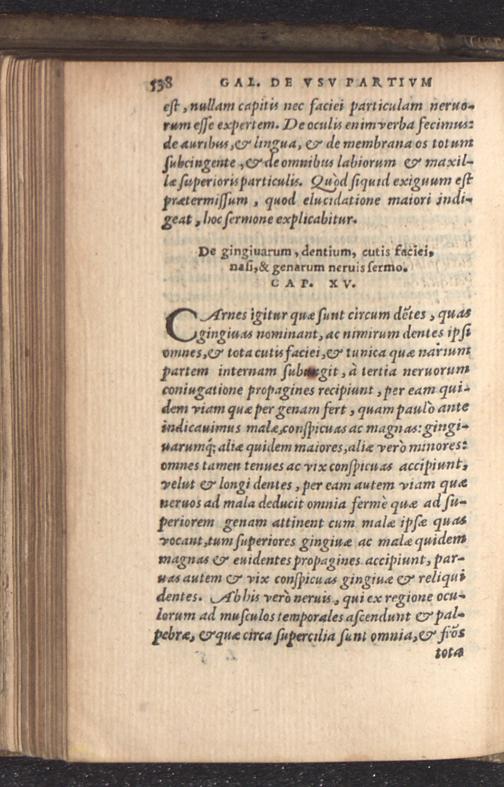 538 GAL. DE VSV PARTIVM
est, nullam capitis nec faciei particulam neruo-
rum esse expertem. De oculis enim verba fecimus:
de auribus, & lingua, & de membrana os totum
subcingente, & de omnibus labiorum & maxil-
læ superioris particulis. Quòd siquid exiguum est
prætermissum, quod elucidatione maiori indi-
geat, hoc sermone explicabitur.
De gingiuarum, dentium, cutis faciei,
nasi, & genarum neruis sermo.
CAP. XV.
CArnes igitur quæ sunt circum dẽtes, quas
gingiuas nominant, ac nimirum dentes ipsi
omnes, & tota cutis faciei, & tunica quæ narium
partem internam subungit, à tertia neruorum
coniugatione propagines recipiunt, per eam qui-
dem viam quæ per genam fert, quam paulò ante
indicauimus malæ, conspicuas ac magnas: gingi-
uarumq; aliæ quidem maiores, aliæ verò minores:
omnes tamen tenues ac vix conspicuas accipiunt,
velut & longi dentes, per eam autem viam quæ
neruos ad mala deducit omnia fermè quæ ad su-
periorem genam attinent cum malæ ipsæ quas
vocant, tum superiores gingiuæ ac malæ quidem
magnas & euidentes propagines accipiunt, par-
uas autem & vix conspicuas gingiuæ & reliqui
dentes. Ab his verò neruis, qui ex regione ocu-
lorum ad musculos temporales ascendunt & pal-
pebræ, & quæ circa supercilia sunt omnia, & frõs
tota